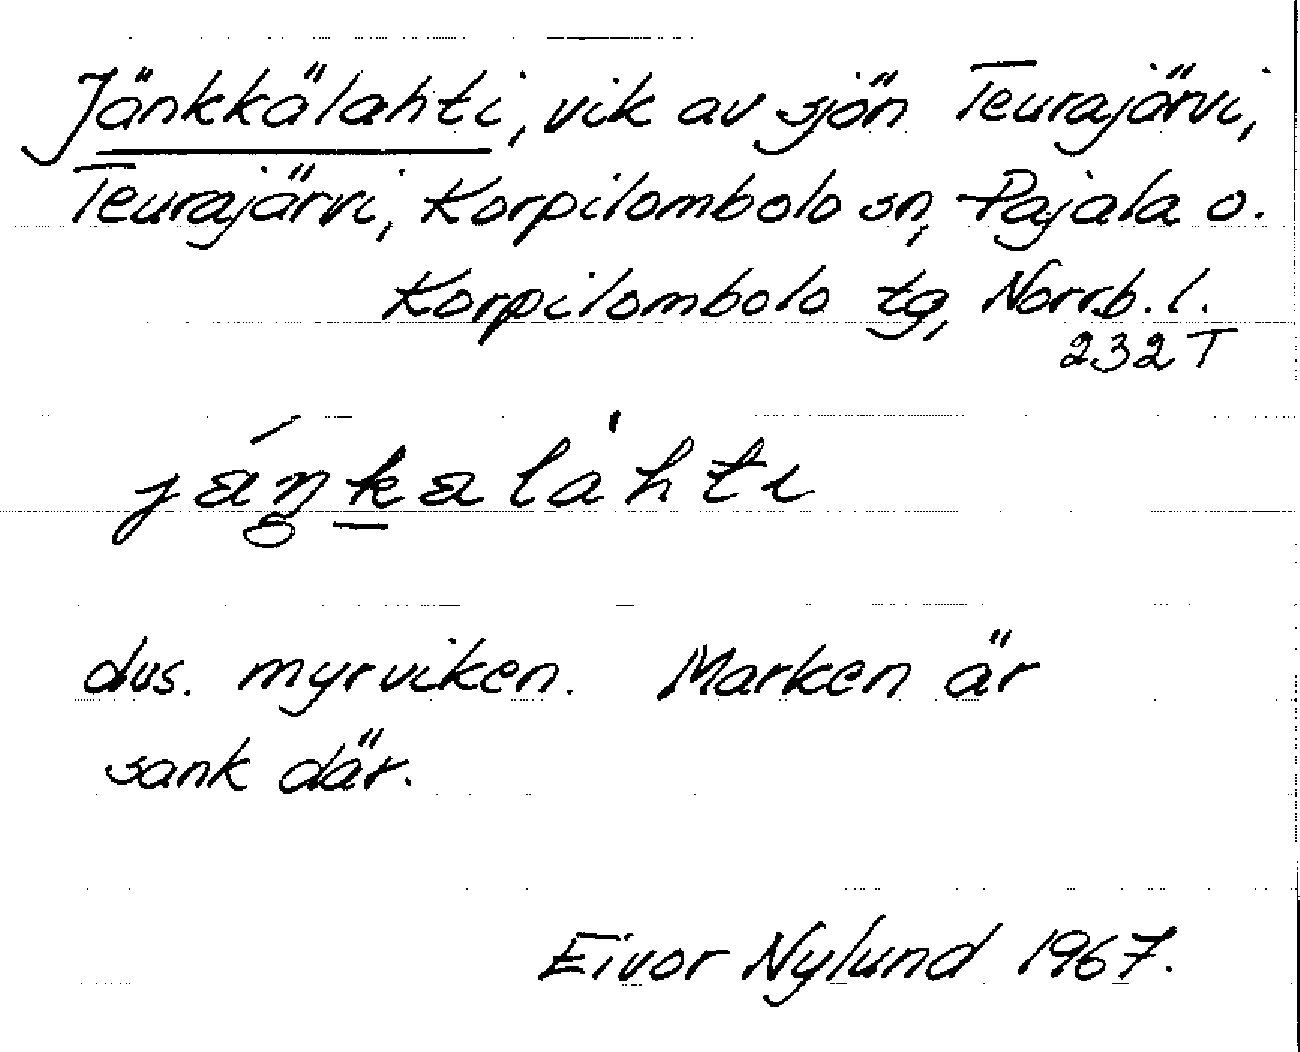 Jänkkälahti, vik av sjön Teurajärvi,
Teurajärvi, Korpilombolo sn, Pajala o.
Korpilombolo tg, Norrb. l.
232 T
jáŋ̥k̲alàhti
dvs. myrviken. Marken är
sank där.
Eivor Nylund 1967.